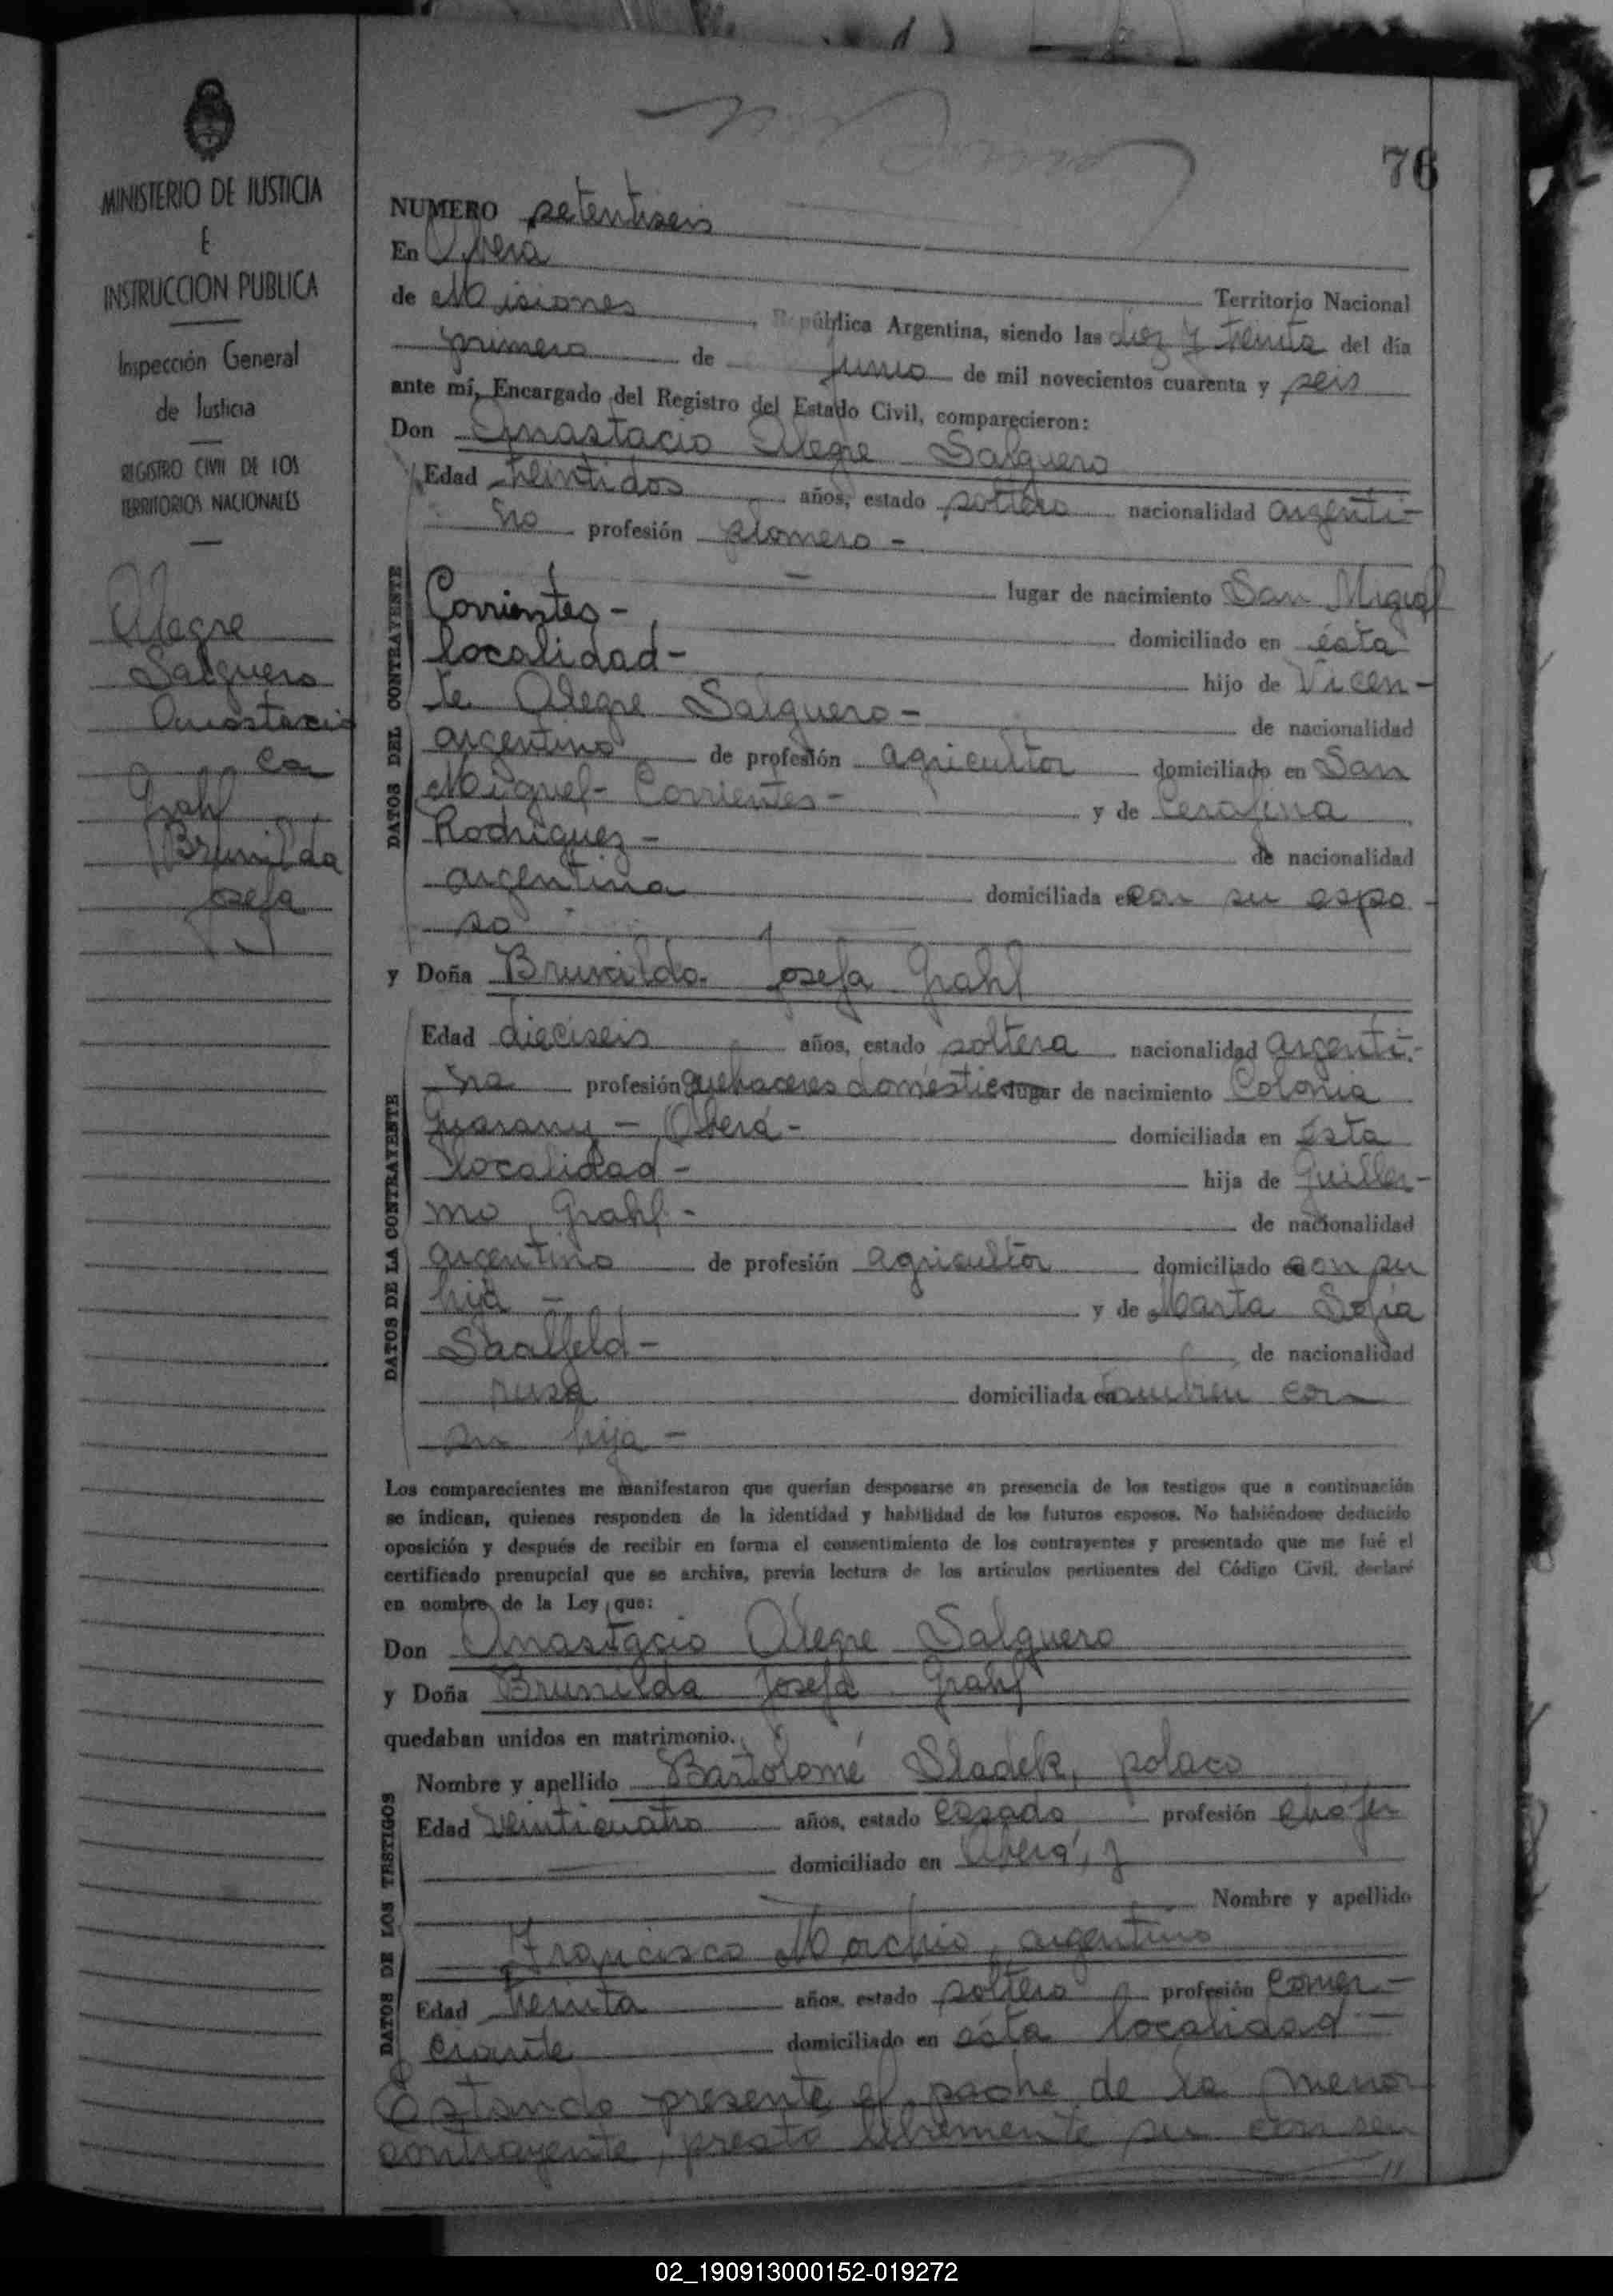 76
MINISTERIO DE JUSTICIA
E
INSTRUCCION PUBLICA
Inspección General
de Justicia
REGISTRO CIVIL DE LOS
TERRITORIOS NACIONALES
Alegre
Salguero
Anastacio
con
Grahl
Brunilda
Josefa
NUMERO setentiseis
En Oberá
Territorio Nacional
de Misiones República Argentina, siendo las diez y treinta del día
primero de junio de mil novecientos cuarenta y seis
ante mí, Encargado del Registro del Estado Civil, comparecieron:
Don Anastacio Alegre Salguero
Edad treintidos años, estado soltero nacionalidad argenti-
no profesión plomero -
lugar de nacimiento San Miguel
Corrientes - domiciliado en ésta
localidad - hijo de Vicen-
te Alegre Salguero - de nacionalidad
argentino de profesión agricultor domiciliado en San
Miguel - Corrientes - y de Cerafina
Rodriguez - de nacionalidad
argentina domiciliada en con su espo-
so
y Doña Brunilda Josefa Grahl
Edad dieciseis años, estado soltera nacionalidad argenti-
na profesión quehaceres domésticos lugar de nacimiento Colonia
Guarany - Oberá - domiciliada en ésta
localidad - hija de Guiller-
mo Grahl - de nacionalidad
argentino de profesión agricultor domiciliado en con su
hija - y de Marta Sofia
Saalfeld - de nacionalidad
rusa domiciliada en tambien con
su hija -
Los comparecientes me manifestaron que querían desposarse en presencia de los testigos que a continuación
se indican, quienes responden de la identidad y habilidad de los futuros esposos. No habiéndose deducido
oposición y después de recibir en forma el consentimiento de los contrayentes y presentado que me fué el
certificado prenupcial que se archiva, previa lectura de los artículos pertinentes del Código Civil, declaré
en nombre de la Ley que:
Don Anastacio Alegre Salguero
y Doña Brunilda Josefa Grahl
quedaban unidos en matrimonio.
Nombre y apellido Bartolomé Sladek, polaco
Edad veinticuatro años, estado casado profesión chófer
domiciliado en Oberá, y
Nombre y apellido
Francisco Morchio, argentino
Edad treinta años, estado soltero profesión comer-
ciante domiciliado en ésta localidad -
Estando presente el padre de la menor
contrayente, prestó libremente su consen
DATOS DEL CONTRAYENTE
DATOS DE LA CONTRAYENTE
DATOS DE LOS TESTIGOS
02_190913000152-019272